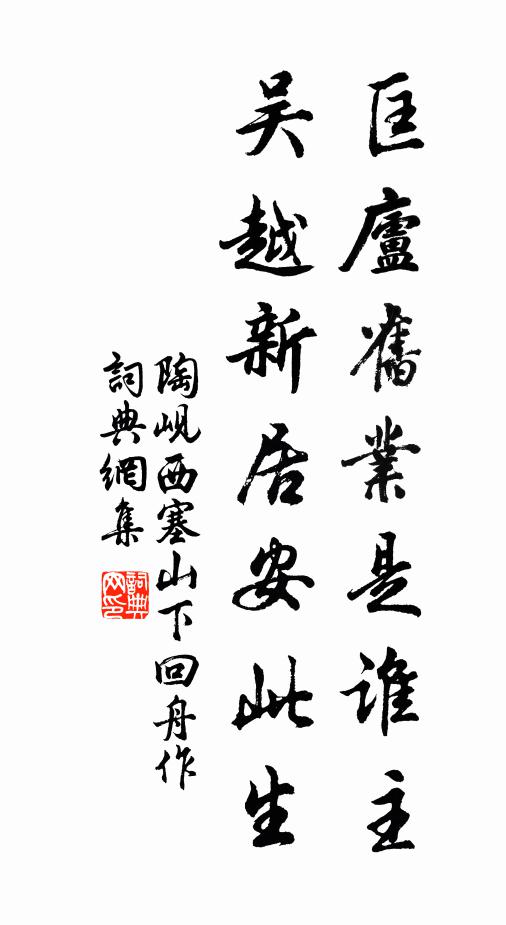 匡廬舊業是誰主
吴越新居安此生
陶峴西塞山下回舟作
詞典網集
詞典网印